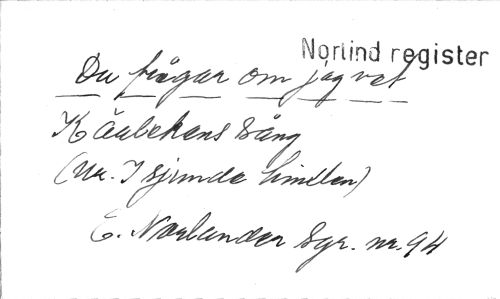 Norlind register
Du frågar om jag vet
Kärlekens Sång
(Ur. I sjunde himlen)
E. Norlander Sgr. nr. 94